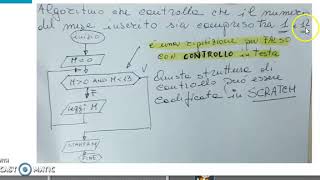 Algoritmo che controlla che il numero
del mese inserito sia compreso tra 1 e 12
INIZIO
M=0
è una ripetizione per FALSO
con CONTROLLO in testa
M>0 AND M<13
F
leggi M
Questa struttura di
controllo può essere
codificata in SCRATCH
STAMPA M
FINE
CAST
MATIC